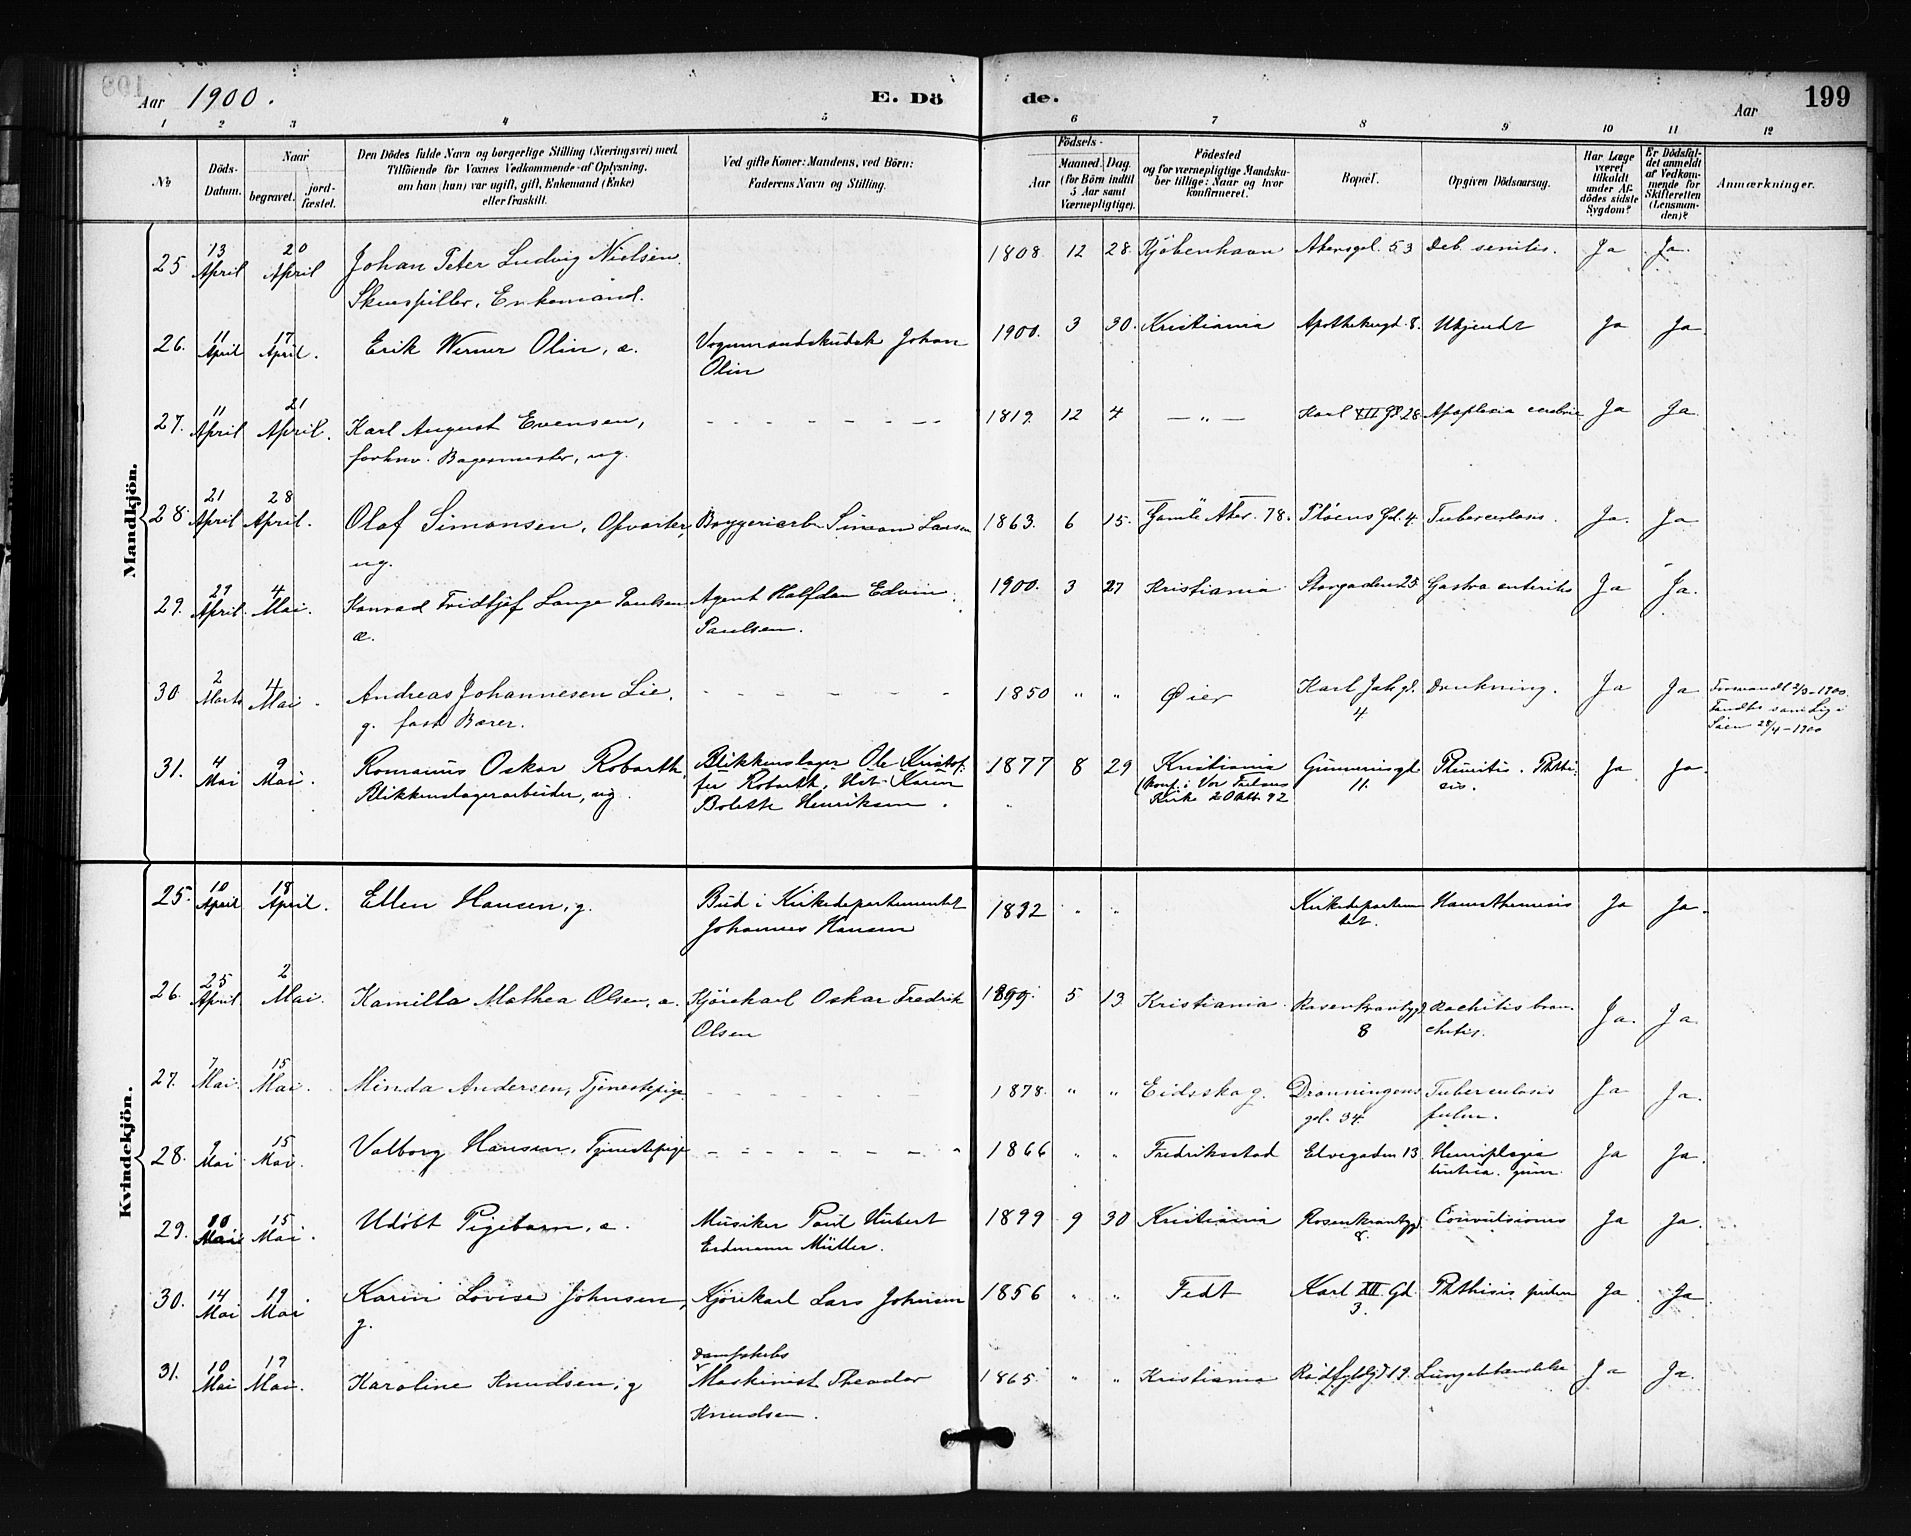 Aar 1900. E. Dö de. Aar 199
1 2 3 4 5 6 7 8 9 10 11 12
No
Döds-Datum.
Naar begravet. jord-fæstet.
Den Dödes fulde Navn og borgerlige Stilling (Næringsvei) med
Tilföiende for Voxnes Vedkommende af Oplysning,
om han (hun) var ugift, gift, Enkemand (Enke)
eller fraskilt.
Ved gifte Koner: Mandens, ved Börn:
Faderens Navn og Stilling.
Födsels-
Aar Maaned. Dag.
(for Börn indtil
5 Aar samt
Værnepligtige).
Födested
og for værnepligtige Mandsku-
ber tillige: Naar og hvor
konfirmeret.
Bopæl.
Opgiven Dödsaarsag.
Har Læge
været
tilkaldt
under Af-
dödes sidste
Sygdom?
Er Dödsfal-
det anmeldt
af Vedkom-
mende for
Skifteretten
(Lensman-
den)?
Anmærkninger.
Mandkjön.
25 13 April 20 April Johan Peter Ludvig Nielsen. 1808 12 28 Kjøbenhavn Akersgd. 53 Deb. senilis. Ja Ja.
Skuespiller, Enkemand.
26. 11 April 17 April. Erik Werner Olin, æ. Vognmandskudsk Johan 1900. 3 30. Kristiania Apothekergd. 8. Ukjendt Ja Ja
Olin
27. 11 April 21 April. Karl August Evensen, - - - - - - - - 1819 12 4 — " — Karl XII Gd 28. Apoplexia cerebri Ja Ja
forhnv. Bagermester, ug.
28. 21 April 28 April. Olaf Simonsen, Opvarter, Bryggeriarb. Simon Larsen 1863. 6 15. Gamle Aker. 78. Pløens Gd. 4. Tuberculosis. Ja. Ja
ug.
29. 27 April 4 Mai. Konrad Fridtjof Lange Paulsen Agent Halfdan Edvin 1900. 3 27 Kristiania Storgaden 25 Gastro enteritis Ja Ja.
æ. Paulsen.
30 2 Marts 4 Mai. Andreas Johannesen Lie. - - - - - - - 1850 " " Øier Karl Joh gd. Drukning. Ja Ja Forsvandt 2/3-1900.
g. fast Bærer. 4 Fandtes som Lig i
Søen 28/4-1900
31. 4 Mai 9 Mai. Romanus Oskar Robarth Blikkenslager Ole Kristof- 1877 8 29 Kristiania Gunnerusgd. Pleuritis. Phthi- Ja Ja.
Blikkenslagerarbeider, ug. fer Robarth, Karen (Konf. i Vor Frelsers 11. sis.
Bolette Henriksen. Kirke 2 Okt. 92
Kvindekjön.
25. 10 April 18 April. Ellen Hansen, g. Bud i Kirkedepartementet 1832 " " Kirkedepartemen Hæmathemesis Ja Ja.
Johannes Hansen tet.
26. 25 April 2 Mai. Kamilla Mathea Olsen, æ. Kjørekarl Oskar Fredrik 1899. 5 13 Kristiania. Rosenkrantzgd Rachitis bron- Ja. Ja
Olsen 8 chitis.
27. 7 Mai. 15 Mai. Minda Andersen, Tjenestepige - - - - - - - 1878. " " Eidsskog. Dronningens Tuberculosis Ja Ja.
gd. 34. pulm.
28. 9 Mai 15 Mai. Valborg Hansen, Tjenestepige - - - - - - - 1866 " " Fredriksstad Elvegaden 13 Hemiplegia Ja Ja.
29. 10 Mai 15 Mai. Udöbt Pigebarn, æ. Musiker Paul Hubert 1899 9 30 Kristiania Rosenkrantzgd. Convulsiones Ja Ja.
Erdmann Müller. 8.
30. 14 Mai 19 Mai Karen Lovise Johnsen, Kjørekarl Lars Johnsen 1856 " " Fedt Karl XII Gd. Phthisis pulm Ja Ja
g. 3.
31. 10 Mai 19 Mai. Karoline Knudsen, g Dampskibs 1865. " " Kristiania Lungebetændelse Ja Ja.
Maskinist Theodor
Knudsen.